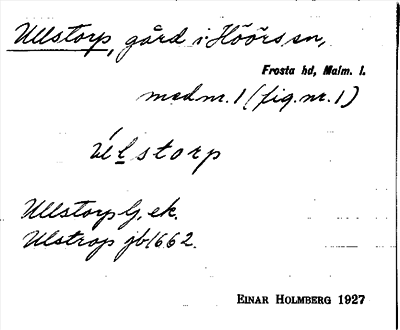 Ullstorp, gård i Höörs sn,
Frosta hd, Malm. l.
med nr. 1 (fig. nr. 1)
úl̲storp
Ullstorp G. ek.
Ulstrop jb 1662.
EINAR HOLMBERG 1927